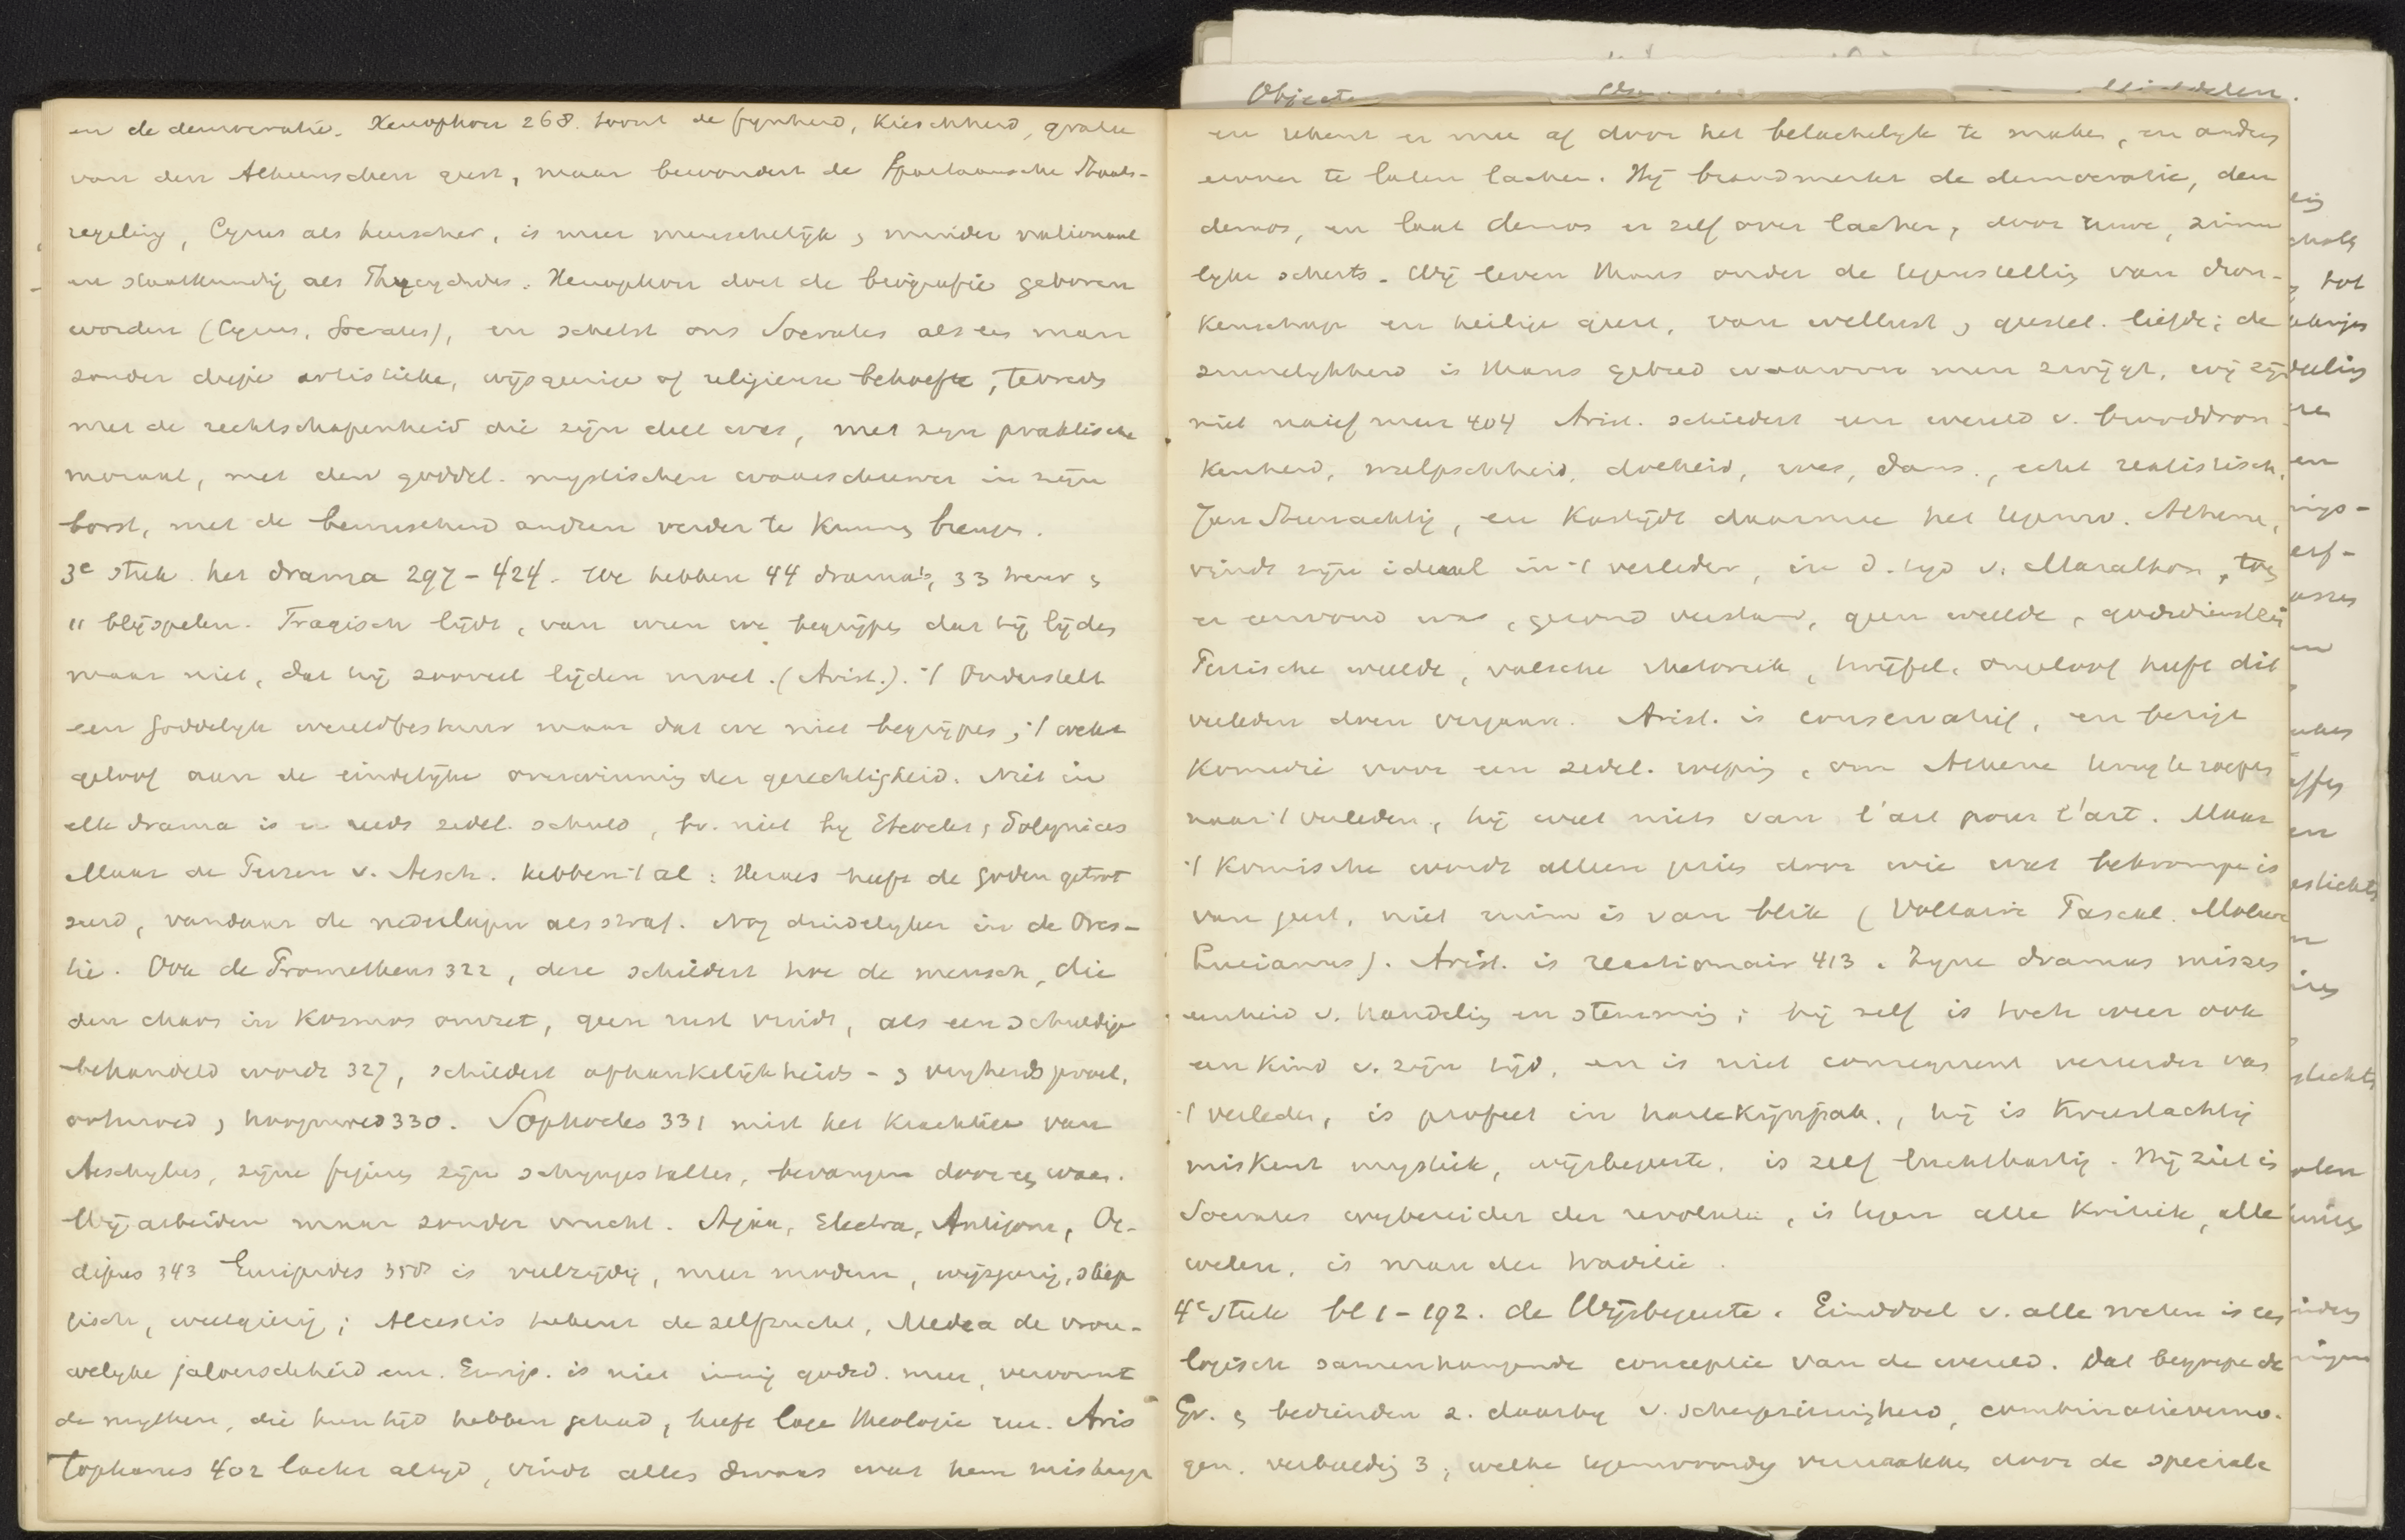 en de democratie. Xenophon 268. toont de fynheid, Kieschheid, gratie
van den Atheenschen geest, maar bewondert de Spartaansche Staats-
regeling, Cyrus als heerscher, is meer menschelijk, minder nationaal
en staatkundig als Thucydides. Xenophon doet de biografie geboren
worden (Cyrus, Socrates), en schetst ons Socrates als een man
zonder diepe artistieke, wijsgeerige of religieuse behoefte, tevreden
met de rechtschapenheid die zijn deel was, met zijn praktische
moraal, met den goddel. mystischen waarschuwer in zijn
borst, met de bewustheid andren verder te kunnen brengen.
3e stuk. het drama 297-424. We hebben 44 drama's, 33 treur &
11 blijspelen. Tragisch lijdt, van wien we begrijpen dat hij lijden
maar niet, dat hij zooveel lijden moet. (Arist.). 't Onderstelt
een Goddelyk wereldbestuur maar dat we niet begrijpen, 't wekt
geloof aan de eindelijke overwinning der gerechtigheid. Niet in
elk drama is er reeds zedel. schuld, bv. niet by Eteocles, Polynices
Maar de Perzen v. Aesch. hebben 't al: Xerxes heeft de goden getrot
seerd, vandaar de nederlagen als straf. Nog duidelyker in de Ores-
tie. Ook de Prometheus 322, deze schildert hoe de mensch, die
den chaos in Kosmos omzet, geen rust vindt, als een schuldige
behandeld wordt 327, schildert afhankelijkheids- & vryheidsgevoel,
ootmoed, hoogmoed 330. Sophocles 331 mist het krachtige van
Aeschylus, zijne figuren zijn schijngestalten, bevangen door een waas.
Wij arbeiden maar zonder vrucht. Ajax, Electra, Antigone, Oe-
dipus 343 Euripides 350 is veelzijdig, meer modern, wijsgeerig, skep
tisch, weetgierig; Alcestis hekent de zelfzucht, Medea de vrou-
welyke jaloerschheid enz. Eurip. is niet innig godsd. meer, vervormt
de mythen, die hun tijd hebben gehad, heeft lage theologie enz. Aris
tophanes 402 lacht altyd, vindt alles dwaas wat hem mishaagt
en rekent er mee af door het belachelyk te maken, en anders
erover te laten lachen. Hij brandmerkt de democratie, den
demos, en laat demos er zelf over lachen, door ruwe, zinne
lyke scherts. Wij leven thans onder de tegenstelling van dron-
kenschap en heilige geest, van wellust & geestel. liefde; de
zinnelykheid is thans gebied waarover men zwijgt, wij zijn
niet naief meer 404 Arist. schildert een wereld v. brooddron
kenheid, dolheid, roes, dans, echt realistisch,
Jan Steenachtig, en kastijdt daarmee het tegenw. Athene,
vindt zijn ideaal in 't verleden, in d. tyd v. Marathon, toen
er eenvoud was, gezond verstand, geen weelde, godsdienstzin
Perzische weelde, valsche rhetoriek, twijfel, ongeloof heeft dit
verleden doen vergaan. Arist. is conservatief, en bezigt
komedie voor een zedel. roeping, om Athene terug te roepen
naar 't verleden, hij weet niets van l'art pour l'art. Maar
't Komische wordt alleen door wie wat bekrompen is
van geest, niet ruim is van blik (Voltaire Pascal. Moliere
Lucianus). Arist. is reactionair 413. Zyne dramas missen
eenheid v. handeling en stemming; hij zelf is toch weer ook
een kind v. zijn tijd, en is niet consequent vereerder van
't verleden, is profeet in harlekijnspak., hij is
miskent mystiek, wijsbegeerte, is zelf luchthartig. Hij ziet in
Socrates wegbereider der revolutie, is tegen alle Kritiek, alle
weten, is man der traditie.
4e stuk bl 1-192. de Wijsbegeerte. Einddoel v. alle weten is een
logisch samenhangende conceptie van de wereld. Dat begrepen de
Gr. & bedienden z. daarby v. scherpzinnigheid, combinatievermo-
gen, verbeelding 3, welke tegenwoordig verzwakken door de speciale